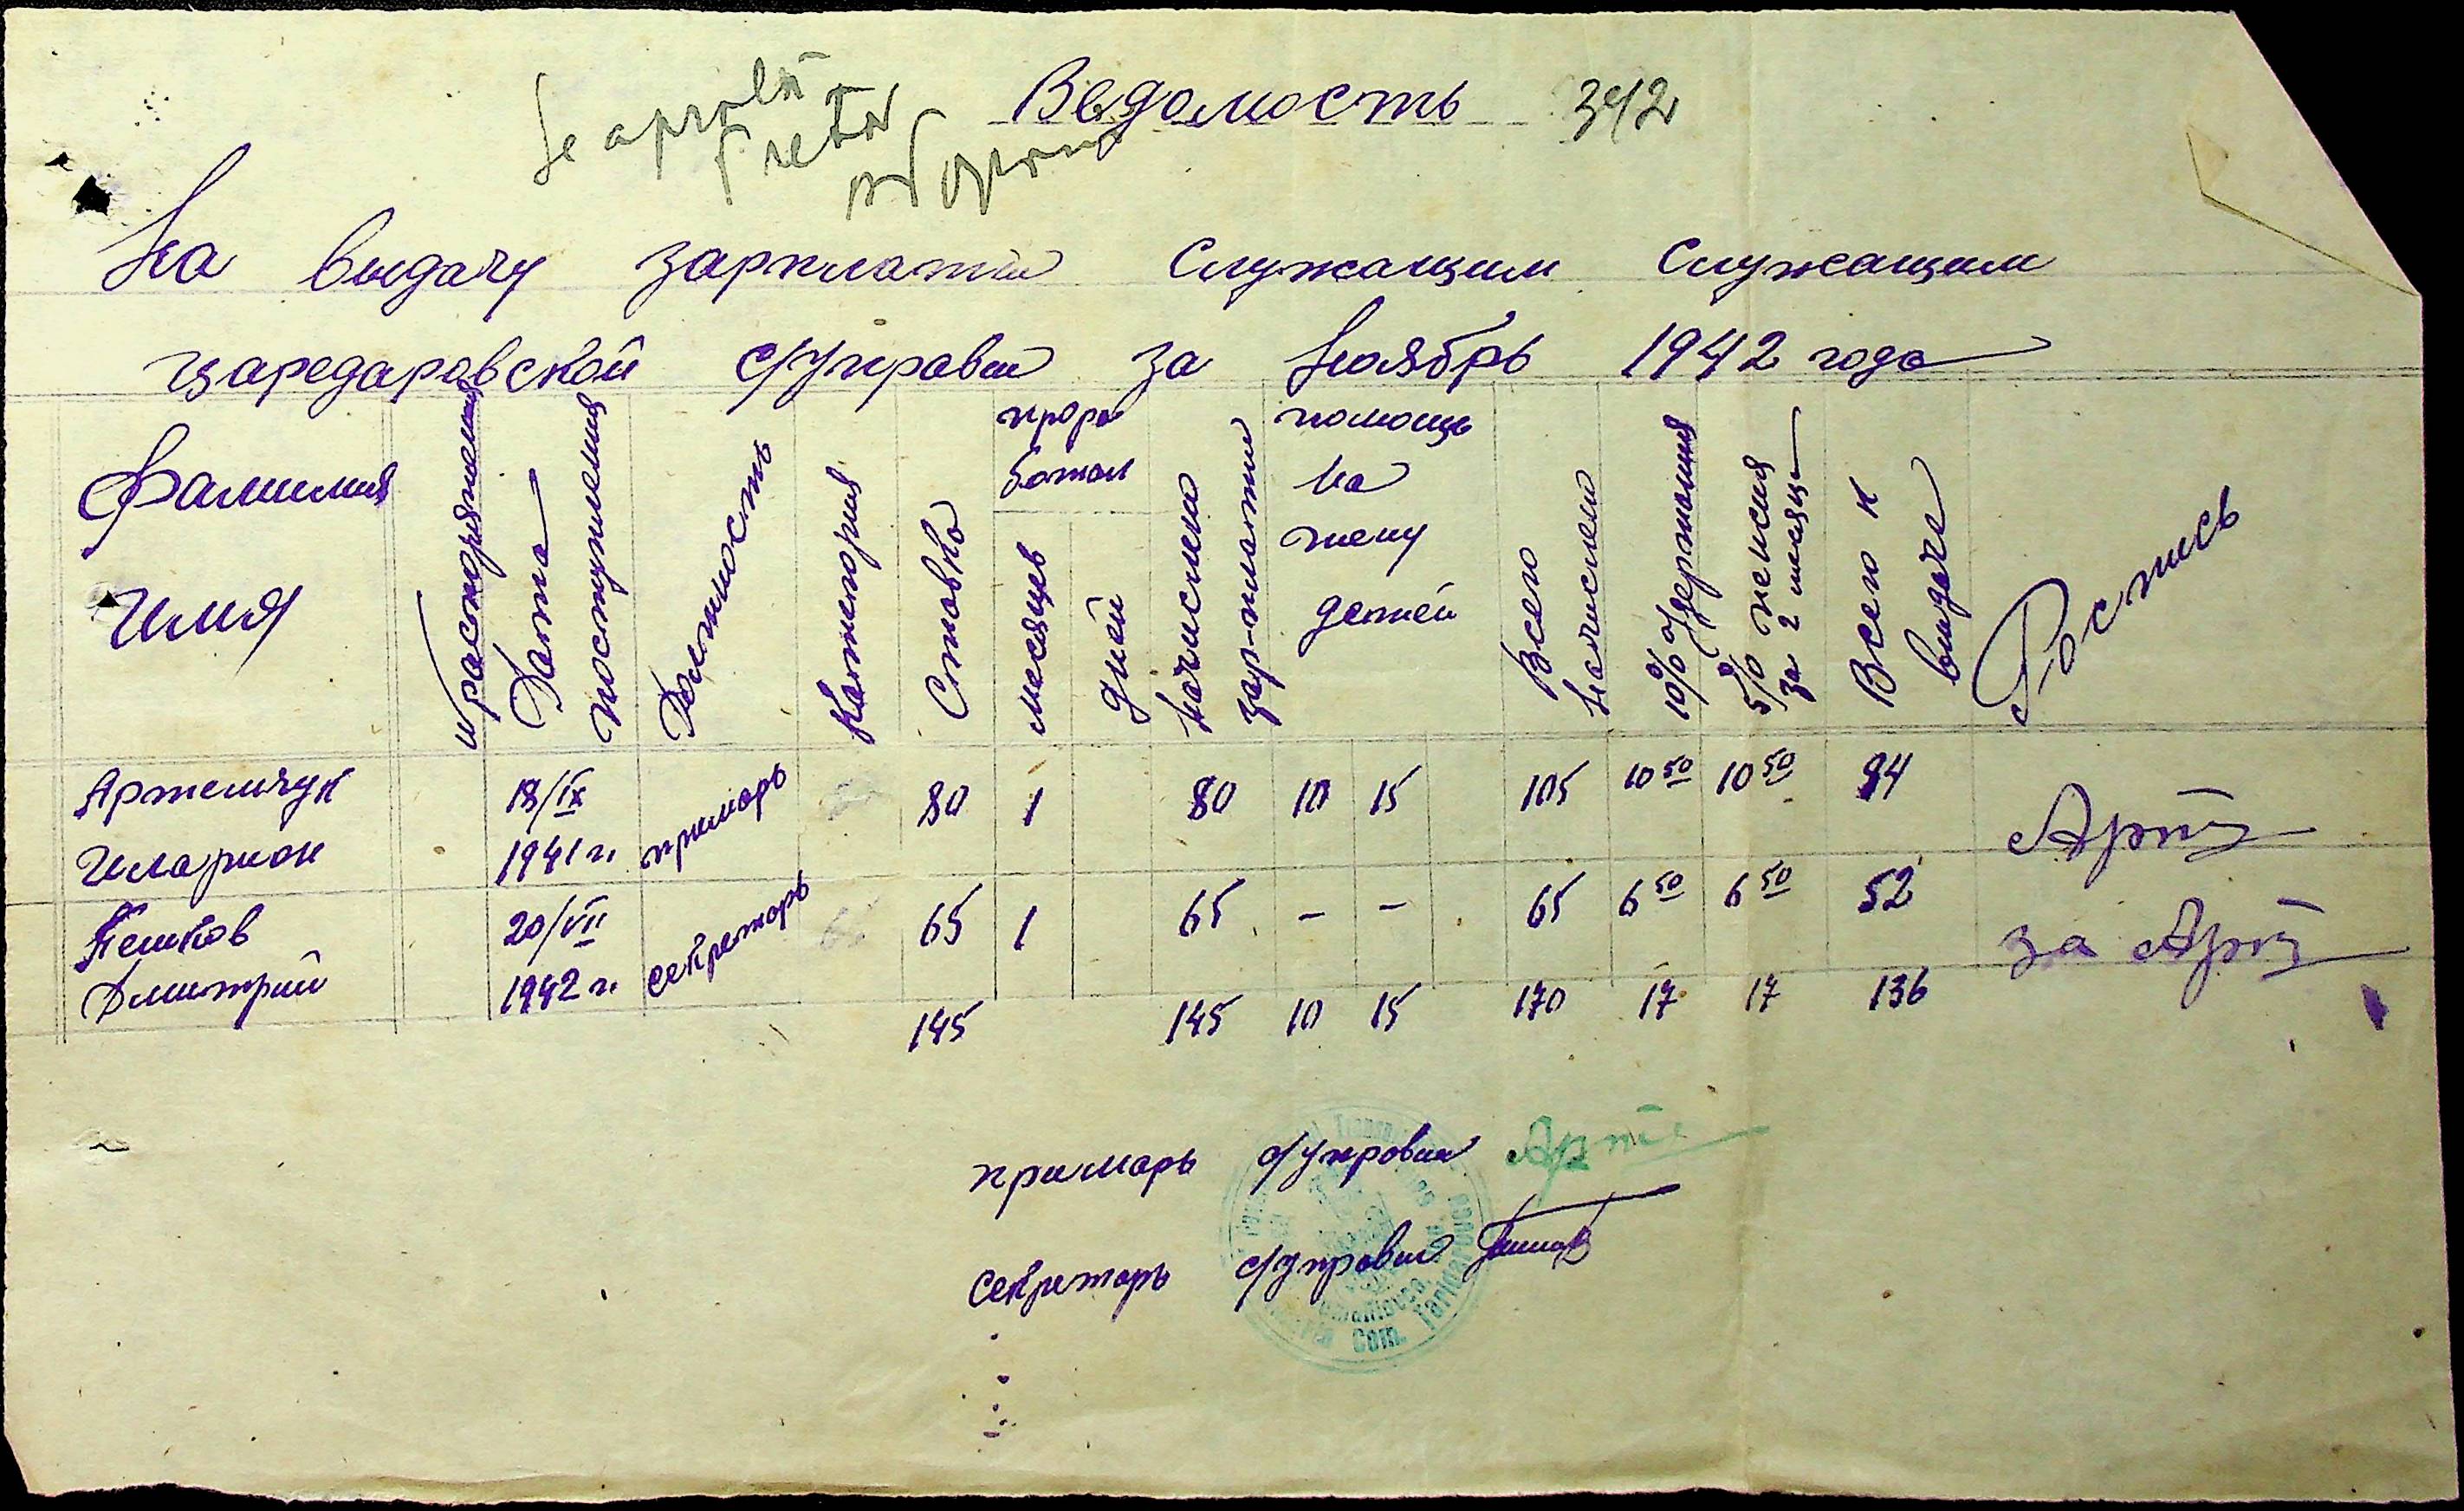 Ведомость 342
Se aprobă
Pretor
На выдачу зарплаты Служащим Служащим
царедаровской с/управы за Ноябрь 1942 года
Фамилия
Имя
№ распоряжения
Дата
поступления
Должность
Категория
Ставка
прора
ботал
месяцев
дней
Начислено
зар-платы
помощь
на
жену
детей
Всего
Начислено
10% Удержания
5% пенсия
за 2 месяца
Всего к
выдаче
Роспись
Артемчук 18/IX примарь 80 1 80 10 15 105 10 50 10 50 84 Арт
Иларион 1941 г.
Пешков 20/VII секретарь 65 1 65 – – 65 6 50 6 50 52 за Арт
Дмитрий 1942 г.
145 145 10 15 170 17 17 136
примарь с/управы Арт
секретарь с/управы
Com.